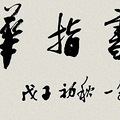 華指書
戊子初秋一